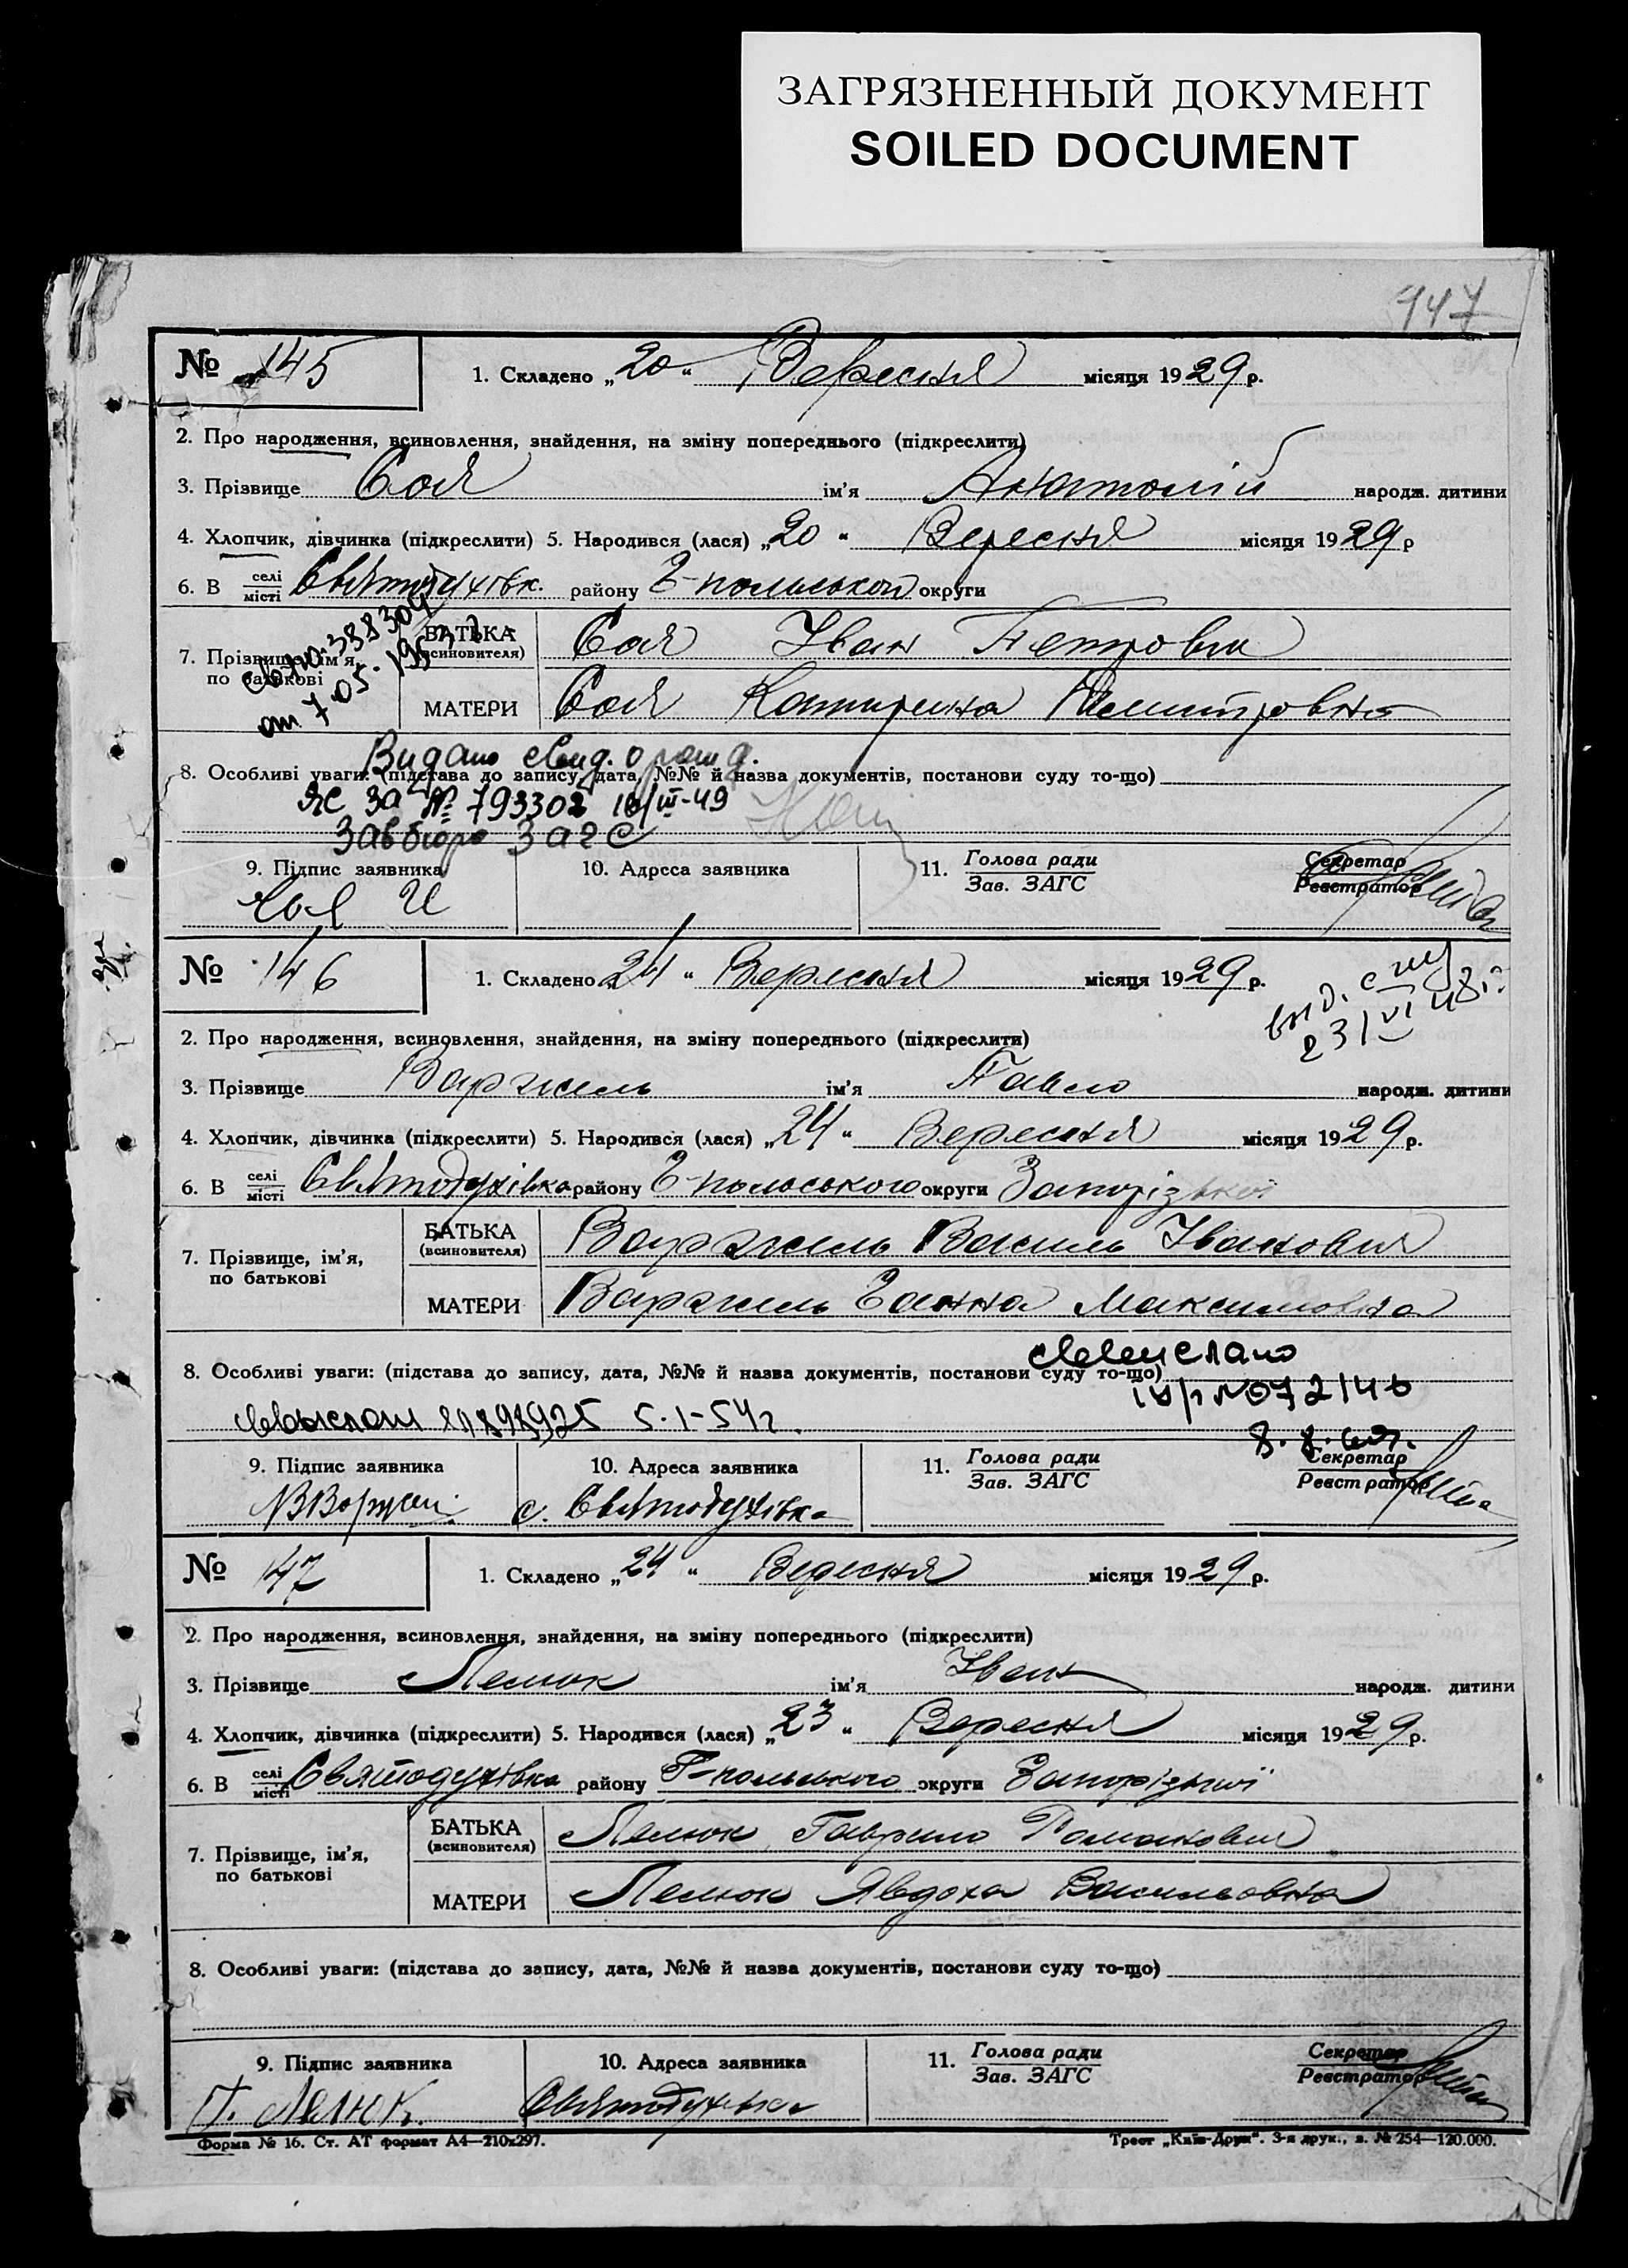 ЗАГРЯЗНЕННЫЙ ДОКУМЕНТ
SOILED DOCUMENT
147
№ 145 1. Складено „20“ Вересня місяця 1929 р.
2. Про народження, всиновлення, знайдення, на зміну попереднього (підкреслити)
3. Прізвище Соя ім'я Анатолій народж. дитини
4. Хлопчик, дівчинка (підкреслити) 5. Народився (лася) „20“ Вересня місяця 1929 р
6. В селі місті Святодухівк. району Г-польської округи
7. Прізвище, ім'я, по батькові
БАТЬКА (всиновителя) Соя Іван Петрович
МАТЕРИ Соя Катирина Дмитровна
от 7.05.
Видано свид. о рожд.
8. Особливі уваги: (підстава до запису, дата, №№ й назва документів, постанови суду то-що)
ЯС за № 793302 /III-49
Завбюро Загс
9. Підпис заявника 10. Адреса заявника 11. Голова ради Зав. ЗАГС Секретар Реєстратор
Соя И
№ 146 1. Складено 24“ Вересня місяця 1929 р.
23/VI 48 г.
2. Про народження, всиновлення, знайдення, на зміну попереднього (підкреслити)
3. Прізвище Варжель ім'я Павло народж. дитини
4. Хлопчик, дівчинка (підкреслити) 5. Народився (лася) „24“ Вересня місяця 1929 р.
6. В селі місті Святодухівка району Г-польського округи Запорізької
7. Прізвище, ім'я, по батькові
БАТЬКА (всиновителя) Варжель Василь Іванович
МАТЕРИ Варжель Ганна Максимовна
8. Особливі уваги: (підстава до запису, дата, №№ й назва документів, постанови суду то-що)
5.I-54 г.
9. Підпис заявника 10. Адреса заявника 11. Голова ради Зав. ЗАГС Секретар Реєстратор
с. Святодухівка
№ 147 1. Складено „24“ Вересня місяця 1929 р.
2. Про народження, всиновлення, знайдення, на зміну попереднього (підкреслити)
3. Прізвище Лелюк ім'я Іван народж. дитини
4. Хлопчик, дівчинка (підкреслити) 5. Народився (лася) „23“ Вересня місяця 1929 р.
6. В селі місті Святодухівка району Г-польського округи Запорізької
7. Прізвище, ім'я, по батькові
БАТЬКА (всиновителя) Лелюк Гаврило Романович
МАТЕРИ Лелюк Явдоха Васильовна
8. Особливі уваги: (підстава до запису, дата, №№ й назва документів, постанови суду то-що)
9. Підпис заявника 10. Адреса заявника 11. Голова ради Зав. ЗАГС Секретар Реєстратор
Г. Лелюк. Святодухівка
Форма № 16. Ст. АТ формат А4—210х297. Трест „Київ-Друк“. 3-я друк., з. № 254—120.000.